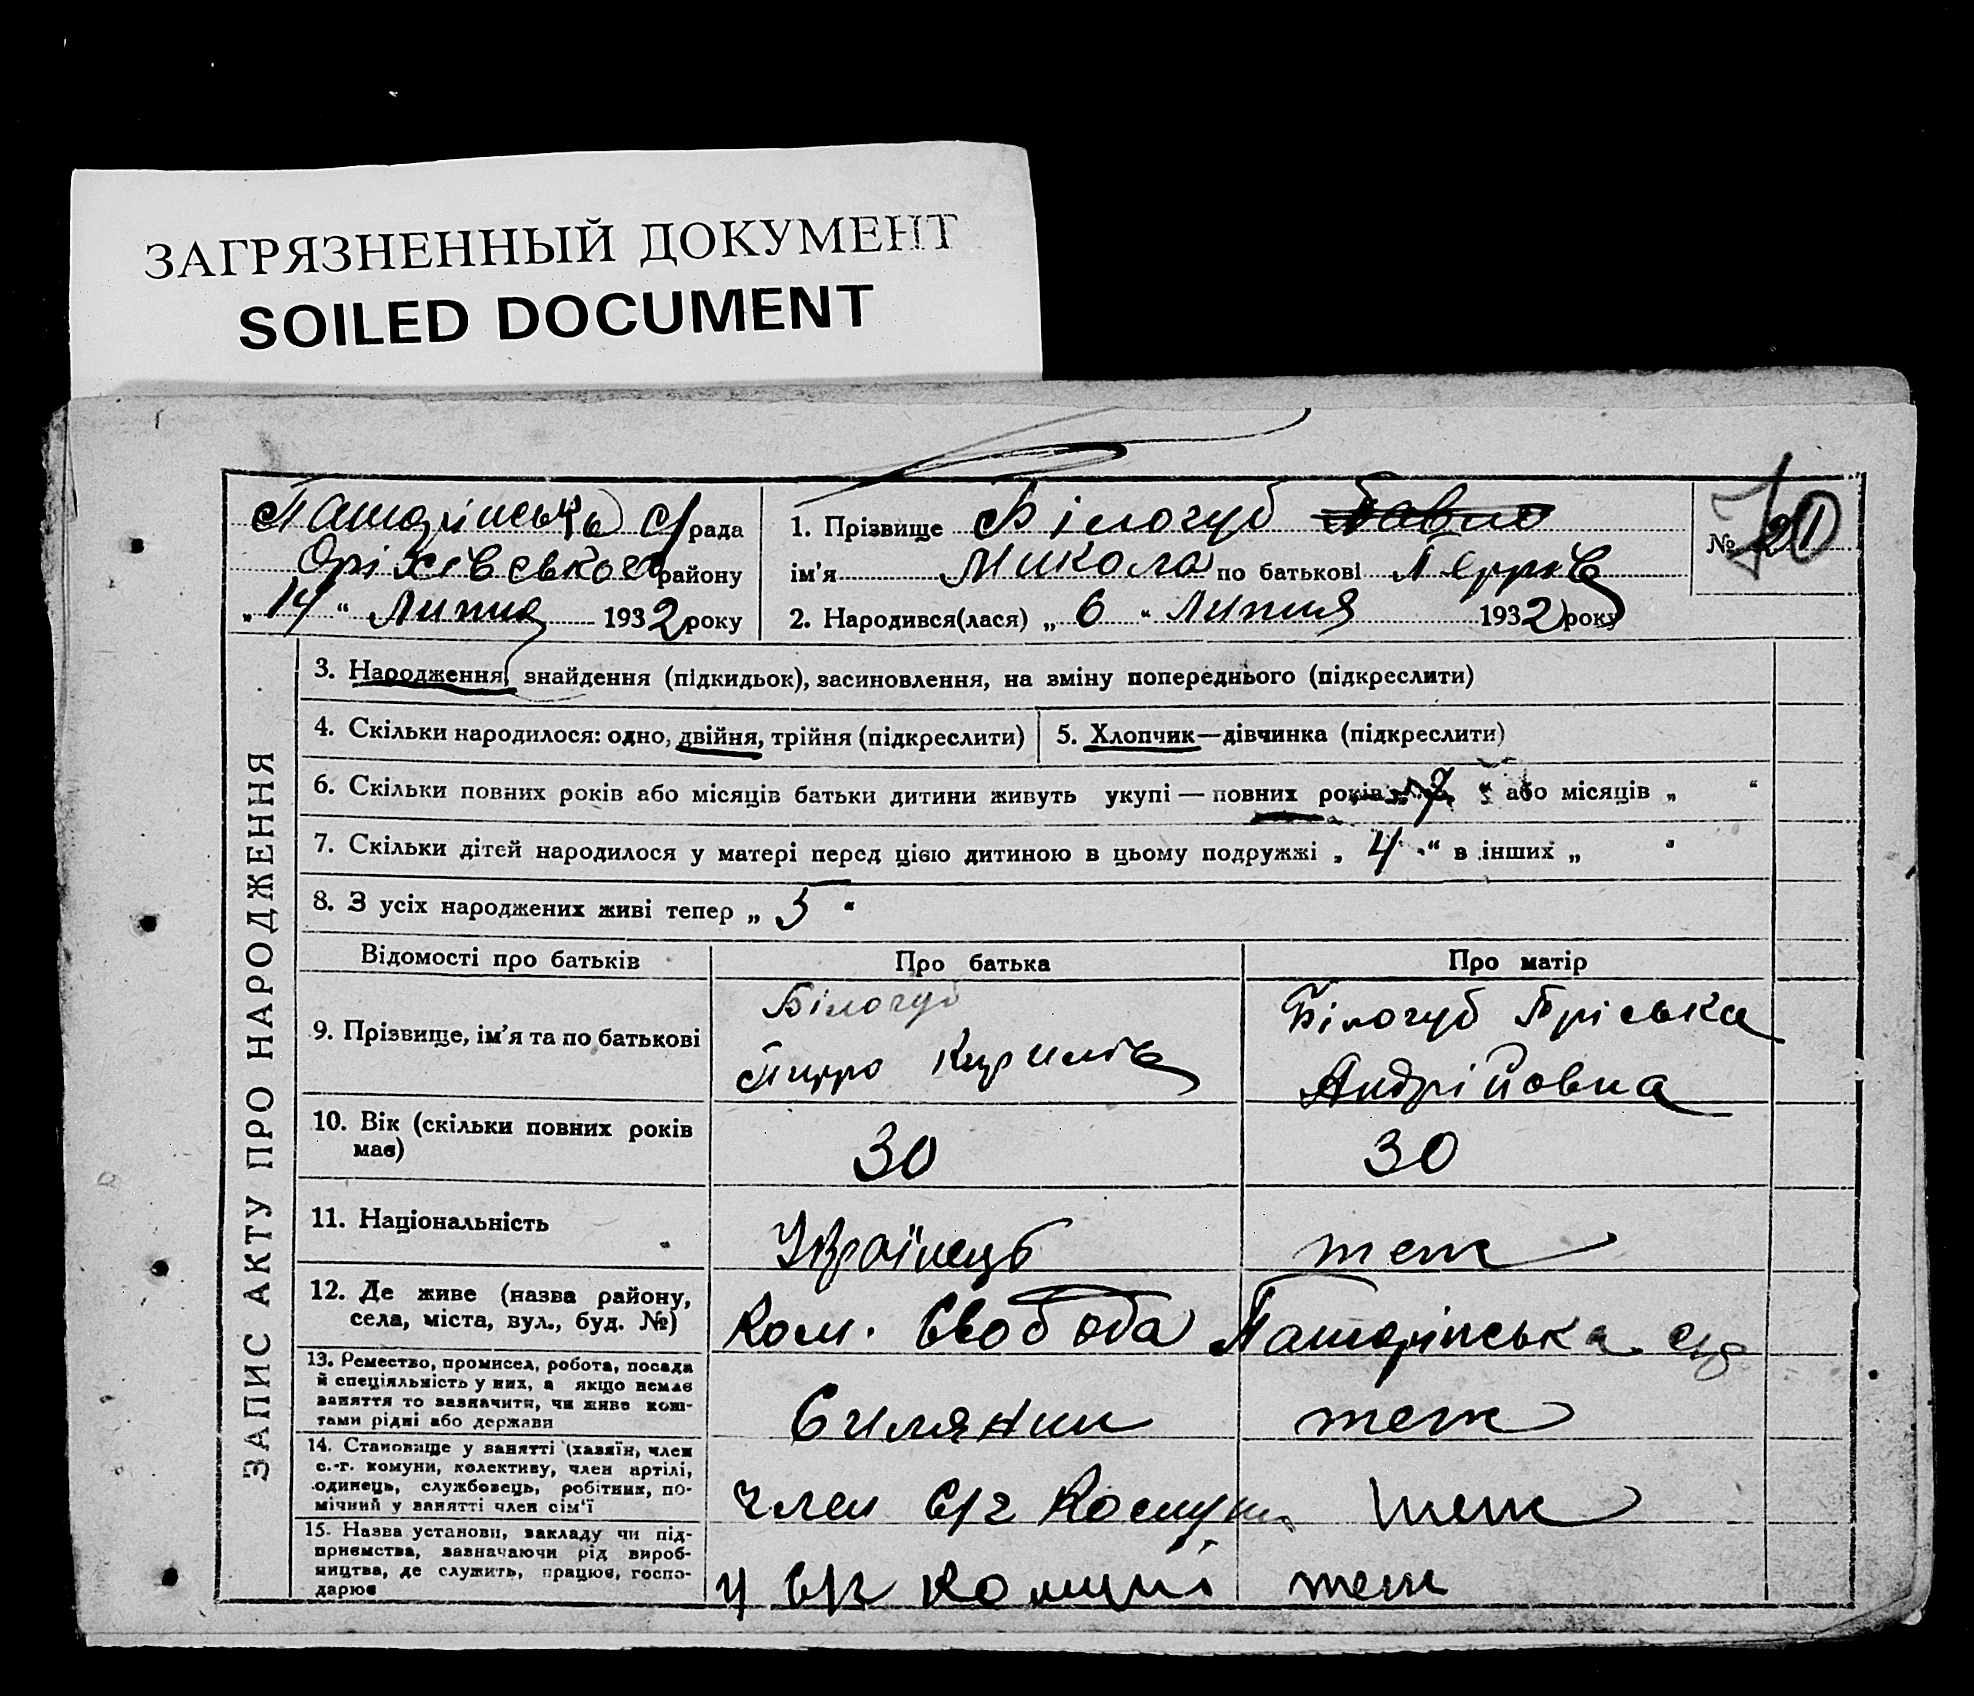 ЗАГРЯЗНЕННЫЙ ДОКУМЕНТ
SOILED DOCUMENT
с/рада
Оріхівського району
„ 14 “ Липня 1932 року
1. Прізвище Білогуб
ім'я Микола по батькові
2. Народився(лася) „ 6 “ Липня 1932 року
№
ЗАПИС АКТУ ПРО НАРОДЖЕННЯ
3. Народження, знайдення (підкидьок), засиновлення, на зміну попереднього (підкреслити)
4. Скільки народилося: одно, двійня, трійня (підкреслити)
5. Хлопчик—дівчинка (підкреслити)
6. Скільки повних років або місяців батьки дитини живуть укупі — повних років „ 7 “ або місяців „ “
7. Скільки дітей народилося у матері перед цією дитиною в цьому подружжі „ 4 “ в інших „ “
8. З усіх народжених живі тепер „ 5 “
Відомості про батьків
Про батька
Про матір
9. Прізвище, ім'я та по батькові
Білогуб
Кирилів
Білогуб Пріська
Андрійовна
10. Вік (скільки повних років
має)
30
30
11. Національність
Українець
теж
12. Де живе (назва району,
села, міста, вул., буд. №)
Ком. Свобода
13. Ремество, промисел, робота, посада
й спеціяльність у них, а якщо немає
заняття то зазначити, чи живе кош-
тами рідні або держави
Силянин
теж
14. Становище у занятті (хазяїн, член
с.-г. комуни, колективу, член артілі,
одинець, службовець, робітник, по-
мічний у занятті член сім'ї
член с/г Комуни
теж
15. Назва установи, закладу чи під-
приємства, зазначаючи рід вироб-
ництва, де служить, працює, госпо-
дарює
у с/г комуні
теж